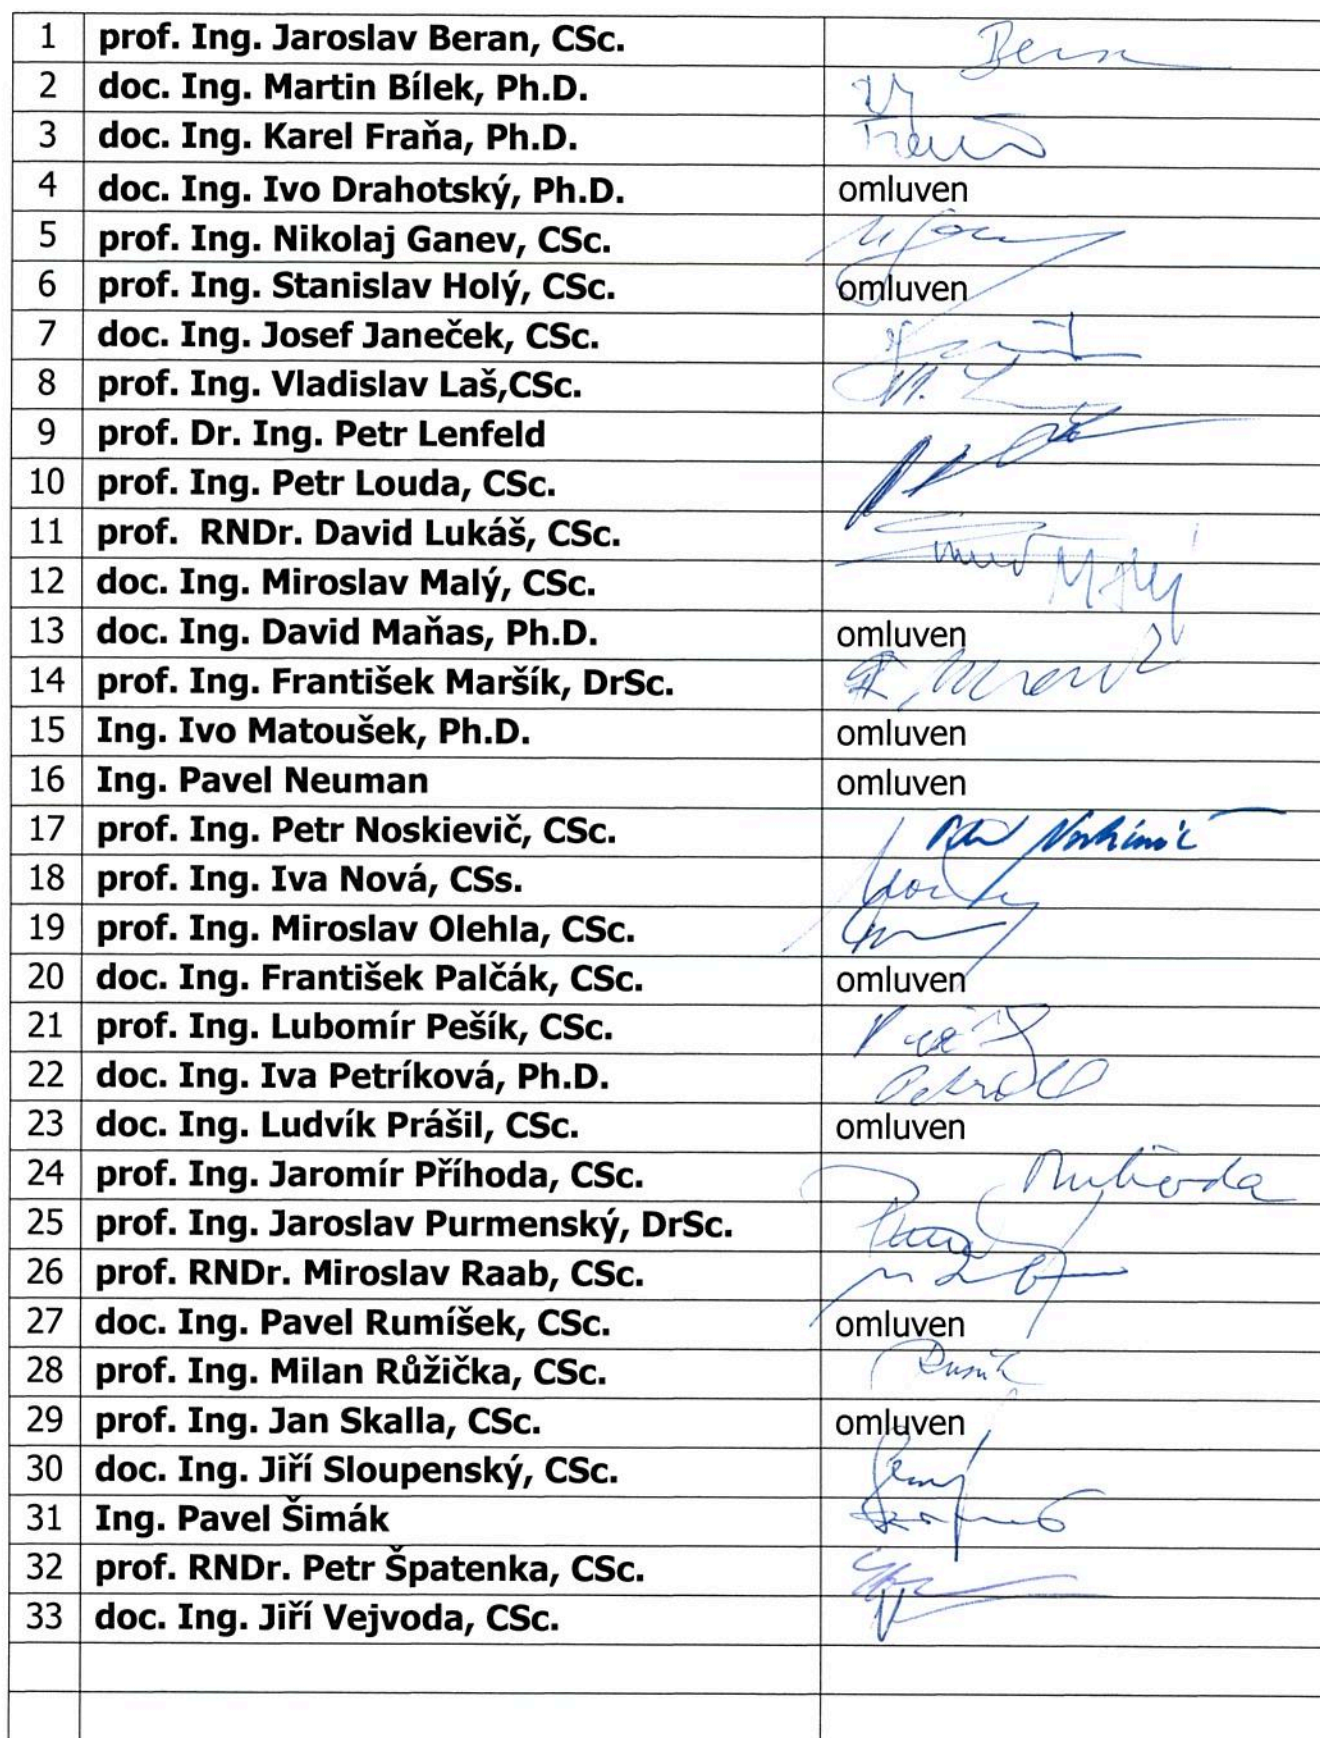 1 prof. Ing. Jaroslav Beran, CSc. Beran
2 doc. Ing. Martin Bílek, Ph.D.
3 doc. Ing. Karel Fraňa, Ph.D.
4 doc. Ing. Ivo Drahotský, Ph.D. omluven
5 prof. Ing. Nikolaj Ganev, CSc.
6 prof. Ing. Stanislav Holý, CSc. omluven
7 doc. Ing. Josef Janeček, CSc.
8 prof. Ing. Vladislav Laš,CSc.
9 prof. Dr. Ing. Petr Lenfeld
10 prof. Ing. Petr Louda, CSc.
11 prof. RNDr. David Lukáš, CSc.
12 doc. Ing. Miroslav Malý, CSc. Malý
13 doc. Ing. David Maňas, Ph.D. omluven
14 prof. Ing. František Maršík, DrSc.
15 Ing. Ivo Matoušek, Ph.D. omluven
16 Ing. Pavel Neuman omluven
17 prof. Ing. Petr Noskievič, CSc.
18 prof. Ing. Iva Nová, CSs.
19 prof. Ing. Miroslav Olehla, CSc.
20 doc. Ing. František Palčák, CSc. omluven
21 prof. Ing. Lubomír Pešík, CSc.
22 doc. Ing. Iva Petríková, Ph.D.
23 doc. Ing. Ludvík Prášil, CSc. omluven
24 prof. Ing. Jaromír Příhoda, CSc. Příhoda
25 prof. Ing. Jaroslav Purmenský, DrSc.
26 prof. RNDr. Miroslav Raab, CSc.
27 doc. Ing. Pavel Rumíšek, CSc. omluven
28 prof. Ing. Milan Růžička, CSc.
29 prof. Ing. Jan Skalla, CSc. omluven
30 doc. Ing. Jiří Sloupenský, CSc.
31 Ing. Pavel Šimák
32 prof. RNDr. Petr Špatenka, CSc.
33 doc. Ing. Jiří Vejvoda, CSc.